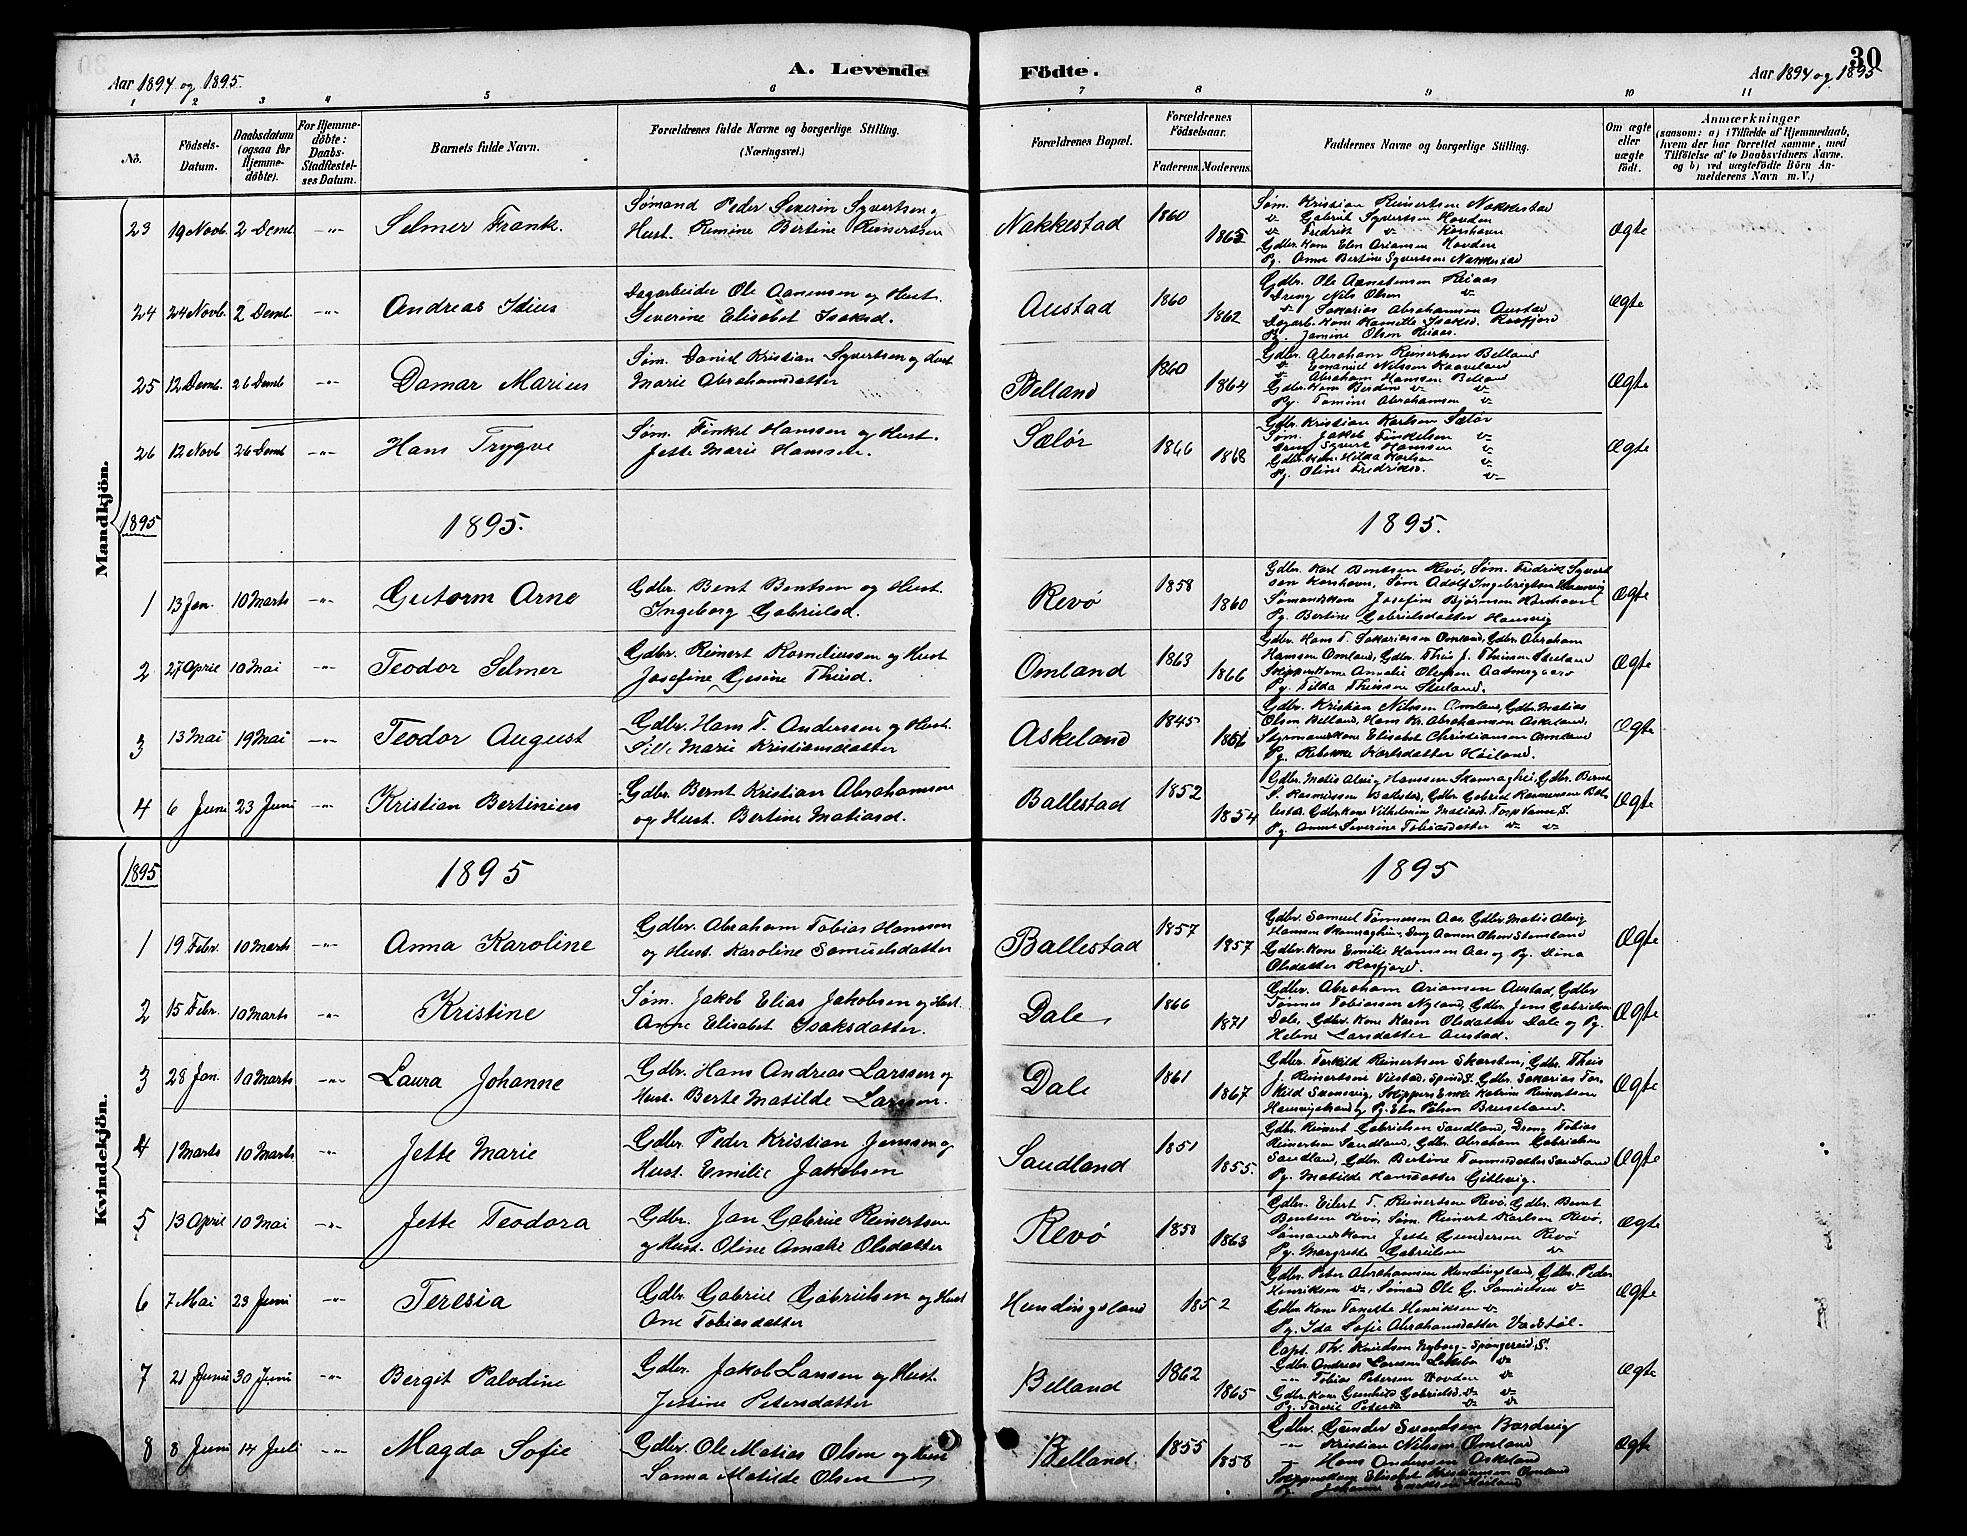 Aar 1894 og 1895.
A. Levende Födte.
30
Aar 1894 og 1895
1 2 3 4 5 6 7 8 9 10 11
No.
Födsels-Datum.
Daabsdatum (ogsaa for Hjemme-döbte).
For Hjemme-döbte: Daabs-Stadfæstel-ses Datum.
Barnets fulde Navn.
Forældrenes fulde Navne og borgerlige Stilling. (Næringsvei.)
Forældrenes Bopæl.
Forældrenes Födselsaar.
Faderens. Moderens.
Faddernes Navne og borgerlige Stilling.
Om ægte eller uægte födt.
Anmærkninger
(saasom: a) i Tilfælde af Hjemmedaab,
hvem der har forrettet samme, med
Tilföielse af to Daabsvidners Navne.
og b) ved uægtefödte Börn An-
melderens Navn m. V.)
Mandkjön.
23 19 Novb. 2 Demb. -"- Selmer Frank.
Sømand Peder Severin Syvertsen og
Hust. Remine Bertine Reinertsen
Nakkestad 1860 1865
Søm. Kristian Reinertsen Nakkestad
v- Gabriel Syvertsen Hovden
v- Fredrik v- Korshavn
Gdbr. Kone Elen Ariansen Hovden
Pg. Anne Bertine Syvertsen Nakkestad
Ægte
24 24 Novb. 2 Demb. -"- Andreas Idius
Dagarbeider Ole Aanensen og Hust.
Severine Elisabet Isaksd.
Austad 1860 1862
Gdbr. Ole Aanetensen Reiaas
Dreng Nils Olsen v-
v- Sakarias Abrahamsen Austad
Dagarb. Kone Isaksd. Rosfjord
Pg. Jamine Olsen Reiaas.
Ægte
25 12 Demb. 26 Demb -"- Damar Marius
Søm. Daniel Kristian Syvertsen og Hust
Marie Abrahamsdatter
Belland 1860 1864
Gdbr. Abraham Reinertsen Belland
v- Emanuel Nilsen Kaaveland
v- Abraham Hansen Belland
Gdbr. Kone Berdine v- v-
Pg. Tomine Abrahamsen v-
Ægte
26 12 Novb 26 Demb -"- Hans Trygve
Søm. Finkel Hanssen og Hust.
Jette Marie Hanssen.
Sælør 1866 1868
Gdbr. Kristian Karlsen Sælør
Søm. Jakob Finkelsen v-
Dreng Syvert Hanssen v-
Gdbr. Kone Hilda Karlsen v-
Pg. Oline Fredriksd. v-
Ægte
1895 1895. 1895.
1 13 Jan. 10 Marts -"- Gutorm Arne
Gdbr. Bent Bentsen og Hust.
Ingeborg Gabrielsd.
Revø 1858 1860
Gdbr. Karl Bentsen Revø, Søm. Fredrik Syvert
sen Korshavn, Søm Adolf Ingebrigtsen
Sømandskone Josefine Bjørnsen Korshavn
Pg. Bertine Gabrielsdatter Hausvig
Ægte
2 27 April 10 Mai -"- Teodor Selmer
Gdbr. Reinert Korneliussen og Hust
Josefine Gesine Theisd.
Omland 1863 1866
Gdbr. Hans T. Sakariassen Omland, Gdbr. Abraham
Hanssen Omland, Gdbr. Theis J. Theissen Skeland
Skipperskone Annalie Olufsen
Pg. Tilda Theissen Skeland.
Ægte
3 13 Mai 19 Mai -"- Teodor August
Gdbr. Hans T. Anderssen og Hust.
Marie Kristiansdatter
Askeland 1845 1856
Gdbr. Kristian Nilssen Omland, Gdbr. Matias
Olsen Belland, Hans Kr. Abrahamsen Askeland,
Styrmandskone Elisabet Christiansen Omland
Pg. Rebekke Karlsdatter Høiland.
Ægte
4 6 Juni 23 Juni -"- Kristian Bertinius
Gdbr. Bernt Kristian Abrahamsen
og Hust. Bertine Matiasd.
Ballestad 1852 1854
Gdbr. Matis Alvig Hanssen Skamraghei, Gdbr. Bernt
S. Rasmussen Ballestad, Gdbr. Gabriel Rasmussen Bal-
lestad. Gdbr. Kone Vilhelmine Matiasd. Torp Vanse S.
Pg. Anne Severine Tobiasdatter v- v-
Ægte
Kvindekjön.
1895 1895 1895
1 19 Febr. 10 Marts -"- Anna Karoline
Gdbr. Abraham Tobias Hanssen
og Hust. Karoline Samuelsdatter
Ballestad 1857 1857
Gdbr. Samuel Tønnessen Aas, Gdbr. Matis Alvig
Hanssen Skamraghei, Dreng Aanen Olsen Stemland
Gdbr. Kone Emilie Hanssen Aas og Pg. Lina
Olsdatter Rosfjord.
Ægte
2 15 Febr. 10 Marts -"- Kristine
Søm. Jakob Elias Jakobsen og Hust.
Anne Elisabet Isaksdatter.
Dale 1866 1871
Gdbr. Abraham Ariansen Austad, Gdbr
Tønnes Tobiassen Nyland, Gdbr. Jens Gabrielsen
Dale, Gdbr. Kone Karen Olsdatter Dale og Pg.
Helene Larsdatter Austad.
Ægte
3 28 Jan. 10 Marts -"- Laura Johanne
Gdbr. Hans Andreas Larssen og
Hust. Berte Matilde Larssen.
Dale 1861 1867
Gdbr. Torkild Reinertsen Skarsten, Gdbr. Theis
J. Reinertsen Viestad, Spind S. Gdbr. Sakarias Tor-
kild Svensvig, Skippers Enke Katrine Reinertsen
Hausvigstrand og Pg. Elen Pålsen Bruseland.
Ægte
4 1 Marts 10 Marts -"- Jette Marie
Gdbr. Peder Kristian Jenssen og
Hust. Emilie Jakobsen
Sandland 1851 1855.
Gdbr. Reinert Gabrielsen Sandland, Dreng Tobias
Reinertsen Sandland, Gdbr. Abraham Gabrielsen
Sandland, Gdbr. Bertine Tønnesdatter Sandland
Pg. Matilde Hansdatter Gitlevig.
Ægte
5 13 April 10 Mai -"- Jette Teodora
Gdbr. Jan Gabriel Reinertsen
og Hust. Oline Amalie Olsdatter
Revø 1858 1863
Gdbr. Eilert T. Reinertsen Revø, Gdbr. Bernt
Bentsen Revø, Søm. Reinert Karlsen Revø,
Sømandskone Jette Gundersen Revø
Pg. Margrethe Gabrielsen v-
Ægte
6 7 Mai 23 Juni -"- Teresia
Gdbr. Gabriel Gabrielsen og Hust
Ane Tobiasdatter
Hundingsland 1852
Gdbr. Peter Abrahamsen Hundingsland, Gdbr. Peder
Henriksen v-, Sømand Ole G. Samuelsen v-
Gdbr Kone Tonette Henriksen v-
Pg. Ida Sofie Abrahamsdatter Vadstøl.
Ægte
7 21 Juni 30 Juni -"- Bergit Palodine
Gdbr. Jakob Larssen og Hust.
Jensine Petersdatter
Belland 1862 1865
Capt. Th. Knudsen Nyborg - Spangereid, S.
Gdbr. Andreas Larssen v-
-"- Tobias Petersen Hovden v-
Gdbr. Kone Gunhild Gabrielsd. v- v-
Pg. Teresie Petersd. v- v-
Ægte
8 8 Juni 14 Juli -"- Magda Sofie
Gdbr. Ole Matias Olsen og Hust
Sanna Matilde Olsen
Belland. 1855 1858
Gdbr. Gunder Svendsen Bardvig
-"- Kristian Nilssen Omland
-"- Hans Anderssen Askeland
Skipperskone Elisabet Kristiansen Omland
Høiland
Ægte